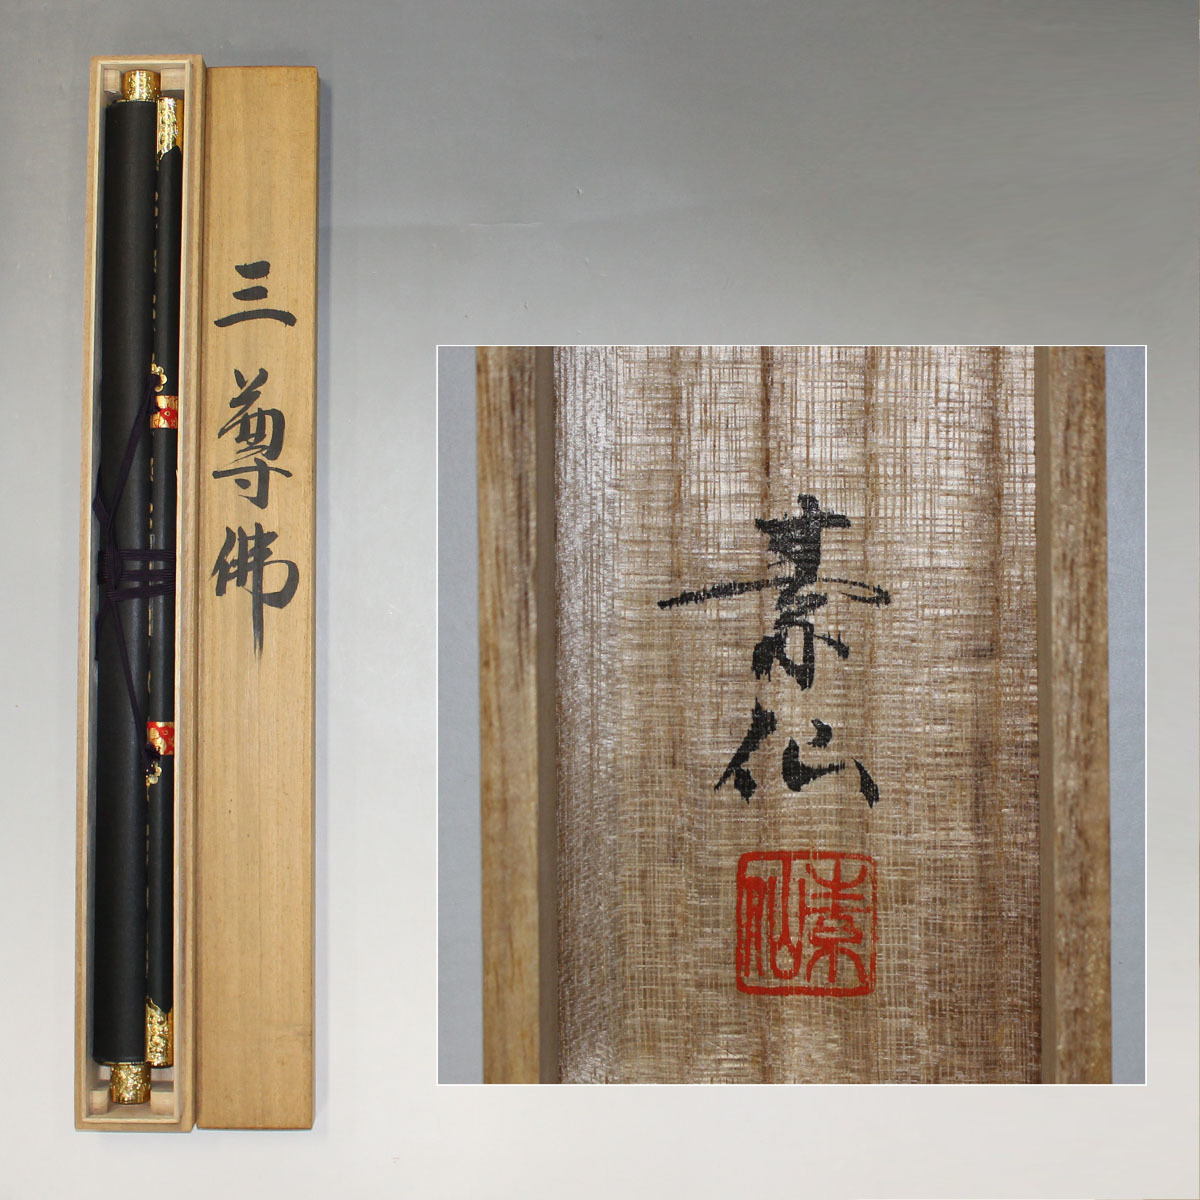 三尊佛
素仙
素仙